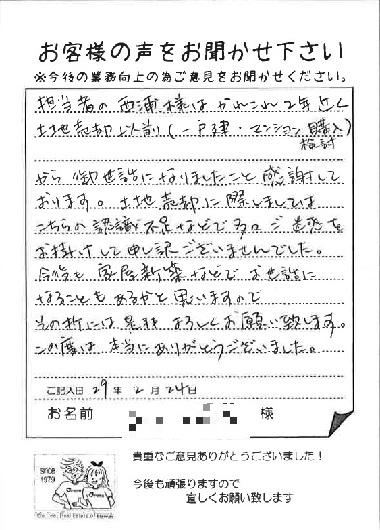 お客様の声をお聞かせ下さい
※今後の業務向上の為ご意見をお聞かせください。
担当者の西浦様はかれこれ2年近く
土地売却以前(一戸建・マンション購入)
検討
から御世話になりましたこと感謝して
おります。土地売却に際しましては
こちらの認識不足などで多々ご迷惑を
お掛けして申し訳ございませんでした。
今後も家屋新築などでお世話に
なることもあるかと思いますので
その折には是非よろしくお願い致します。
この度は本当にありがとうございました。
ご記入日 29年 2月 24日
お名前 様
since
1979
貴重なご意見ありがとうございました!
今後も頑張りますので
宜しくお願い致します